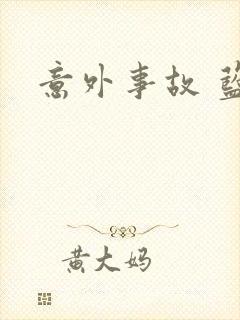 意外事故
黄大妈